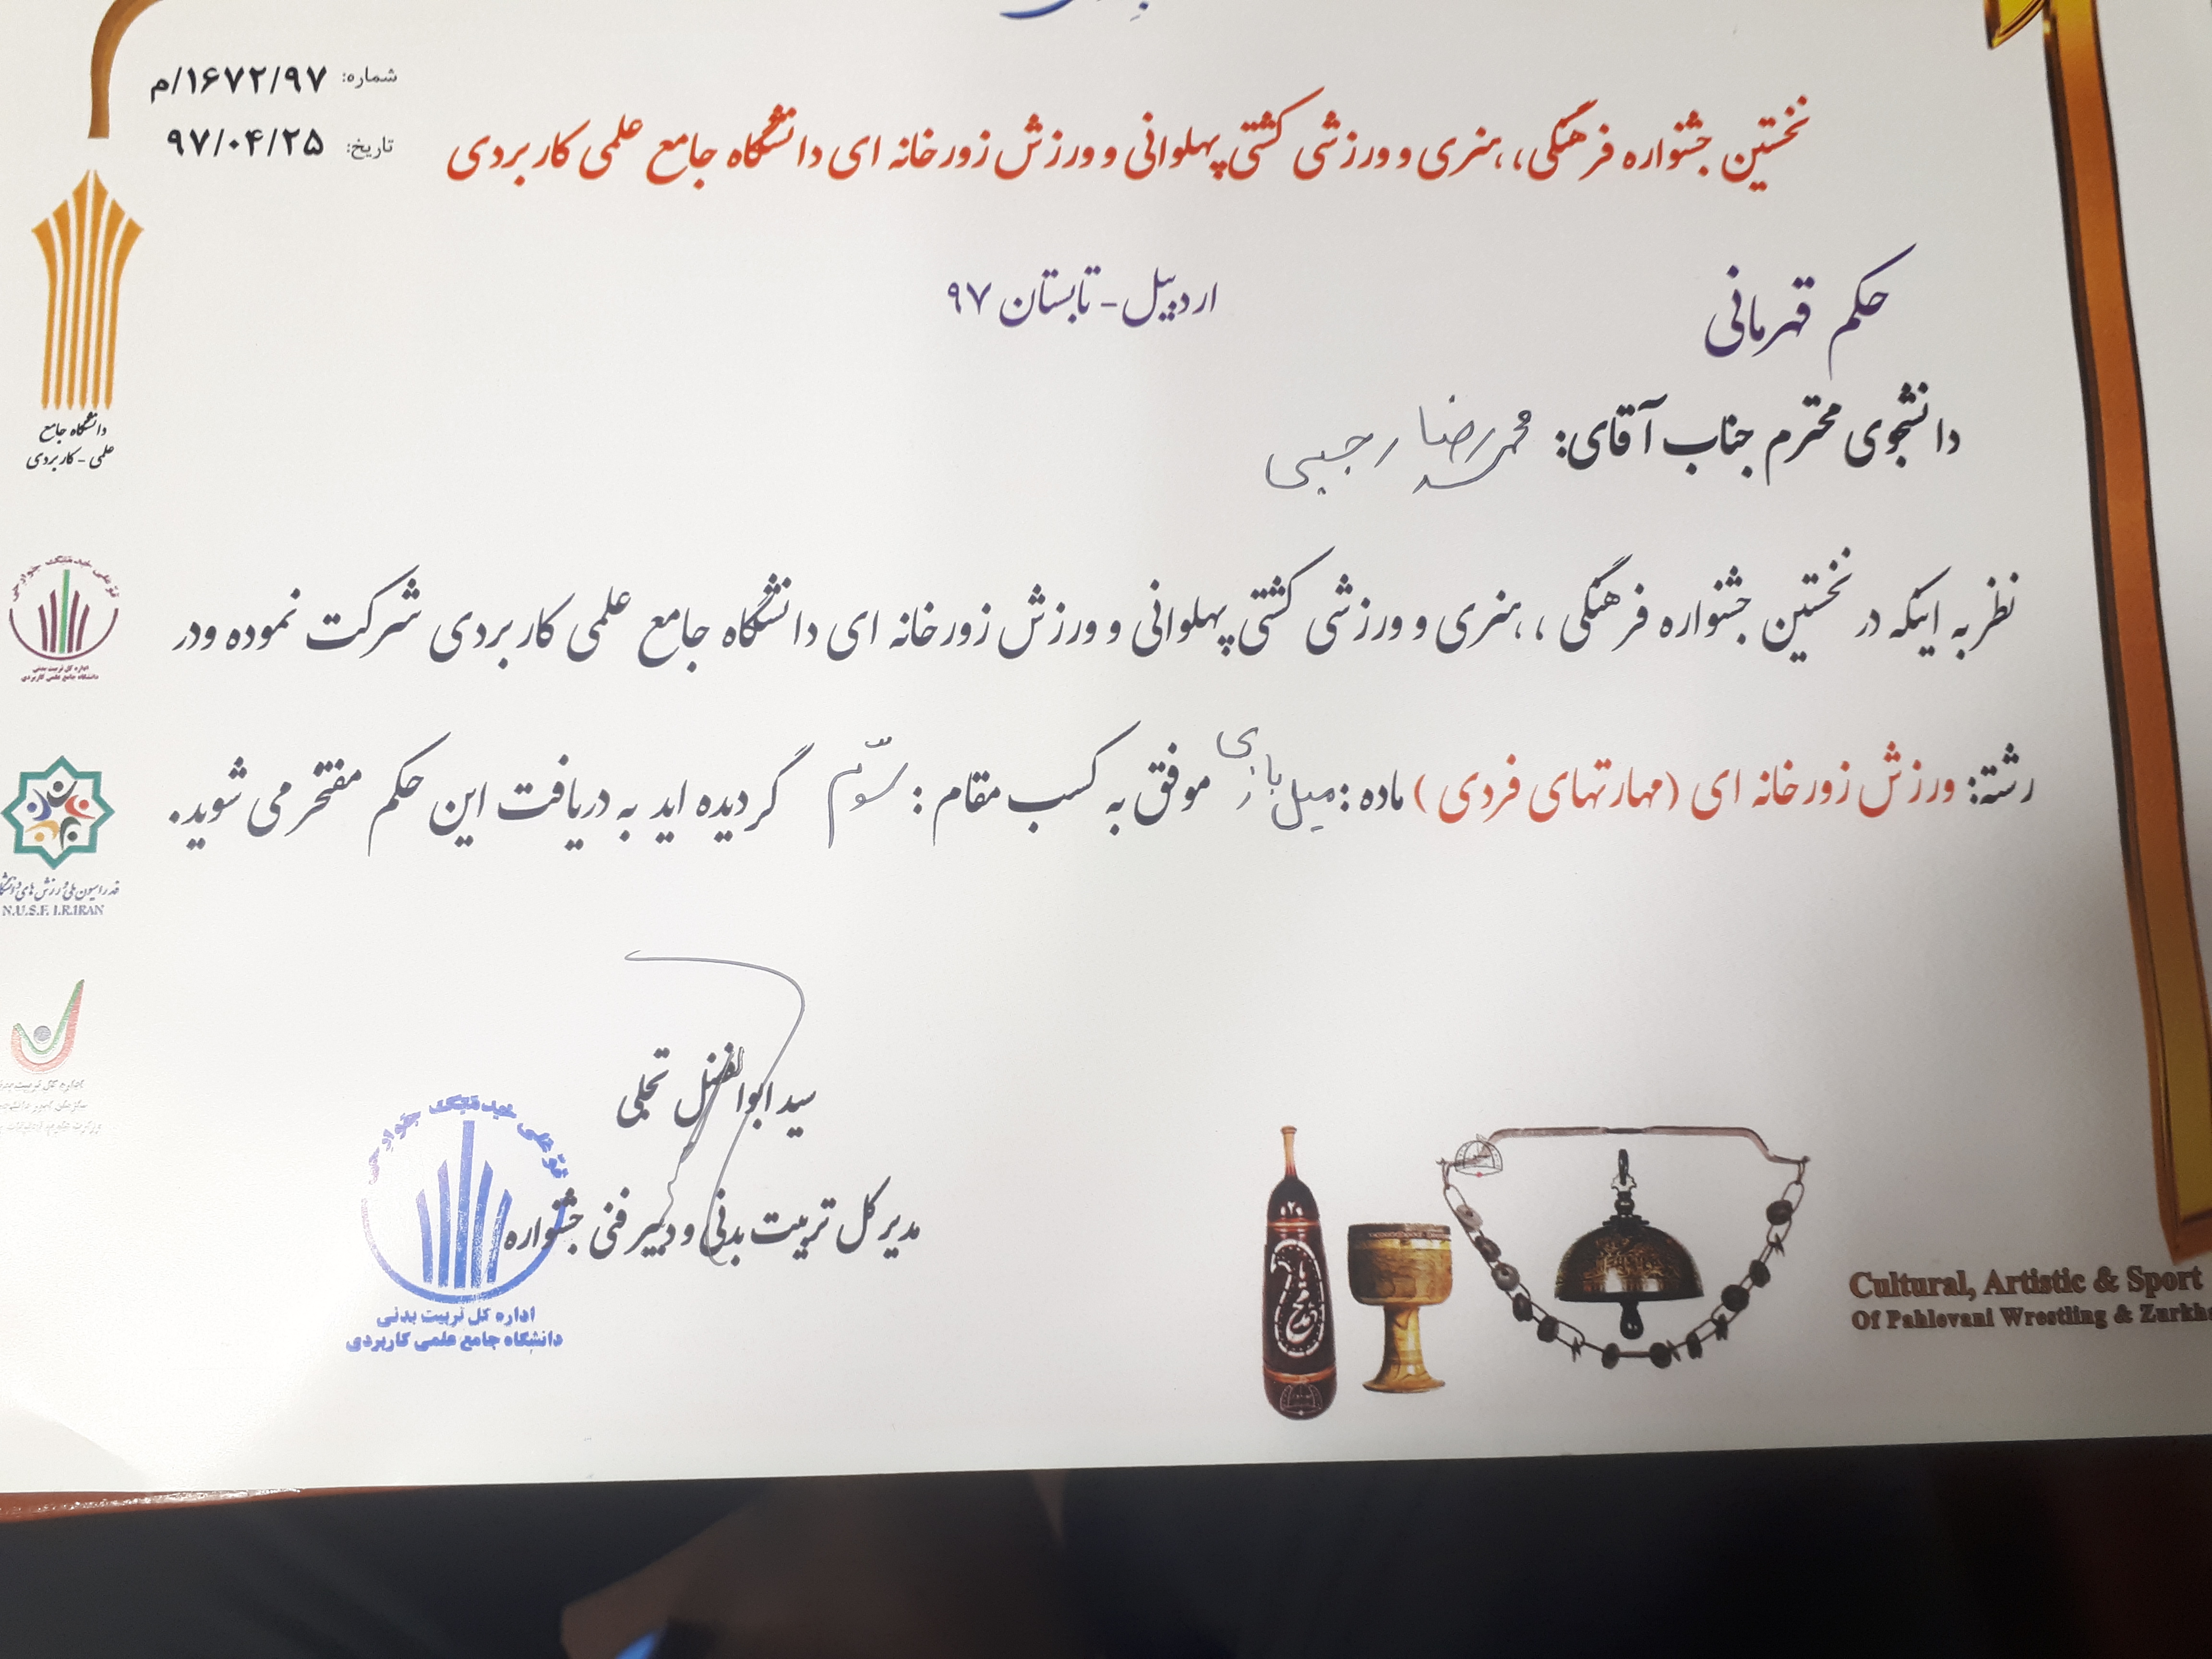 شماره: ۱۶۷۲/۹۷/م
تاریخ: ۹۷/۰۴/۲۵
نخستین جشنواره فرهنگی، ،هنری و ورزشی کشتی پهلوانی و ورزش زورخانه ای دانشگاه جامع علمی کاربردی
اردبیل - تابستان ۹۷
حکم قهرمانی
دانشجوی محترم جناب آقای: محمدرضا رجبی
نظر به اینکه در نخستین جشنواره فرهنگی ، ،هنری و ورزشی کشتی پهلوانی و ورزش زورخانه ای دانشگاه جامع علمی کاربردی شرکت نموده ودر
رشته: ورزش زورخانه ای (مهارتهای فردی ) ماده : میل بازی موفق به کسب مقام : سوّم گردیده اید به دریافت این حکم مفتخر می شوید.
سید ابوالفضل تجلی
مدیر کل تربیت بدنی و دبیر فنی جشنواره
قو علی خدمتک جوارحی
اداره کل تربیت بدنی
دانشگاه جامع علمی کاربردی
دانشگاه جامع
علمی - کاربردی
قو علی خدمتک جوارحی
اداره کل تربیت بدنی
دانشگاه جامع علمی کاربردی
فدراسیون ملی ورزش های
N.U.S.F. I.R.IRAN
اداره کل تربیت
Cultural, Artistic & Sport
Of Pahlevani Wrestling &